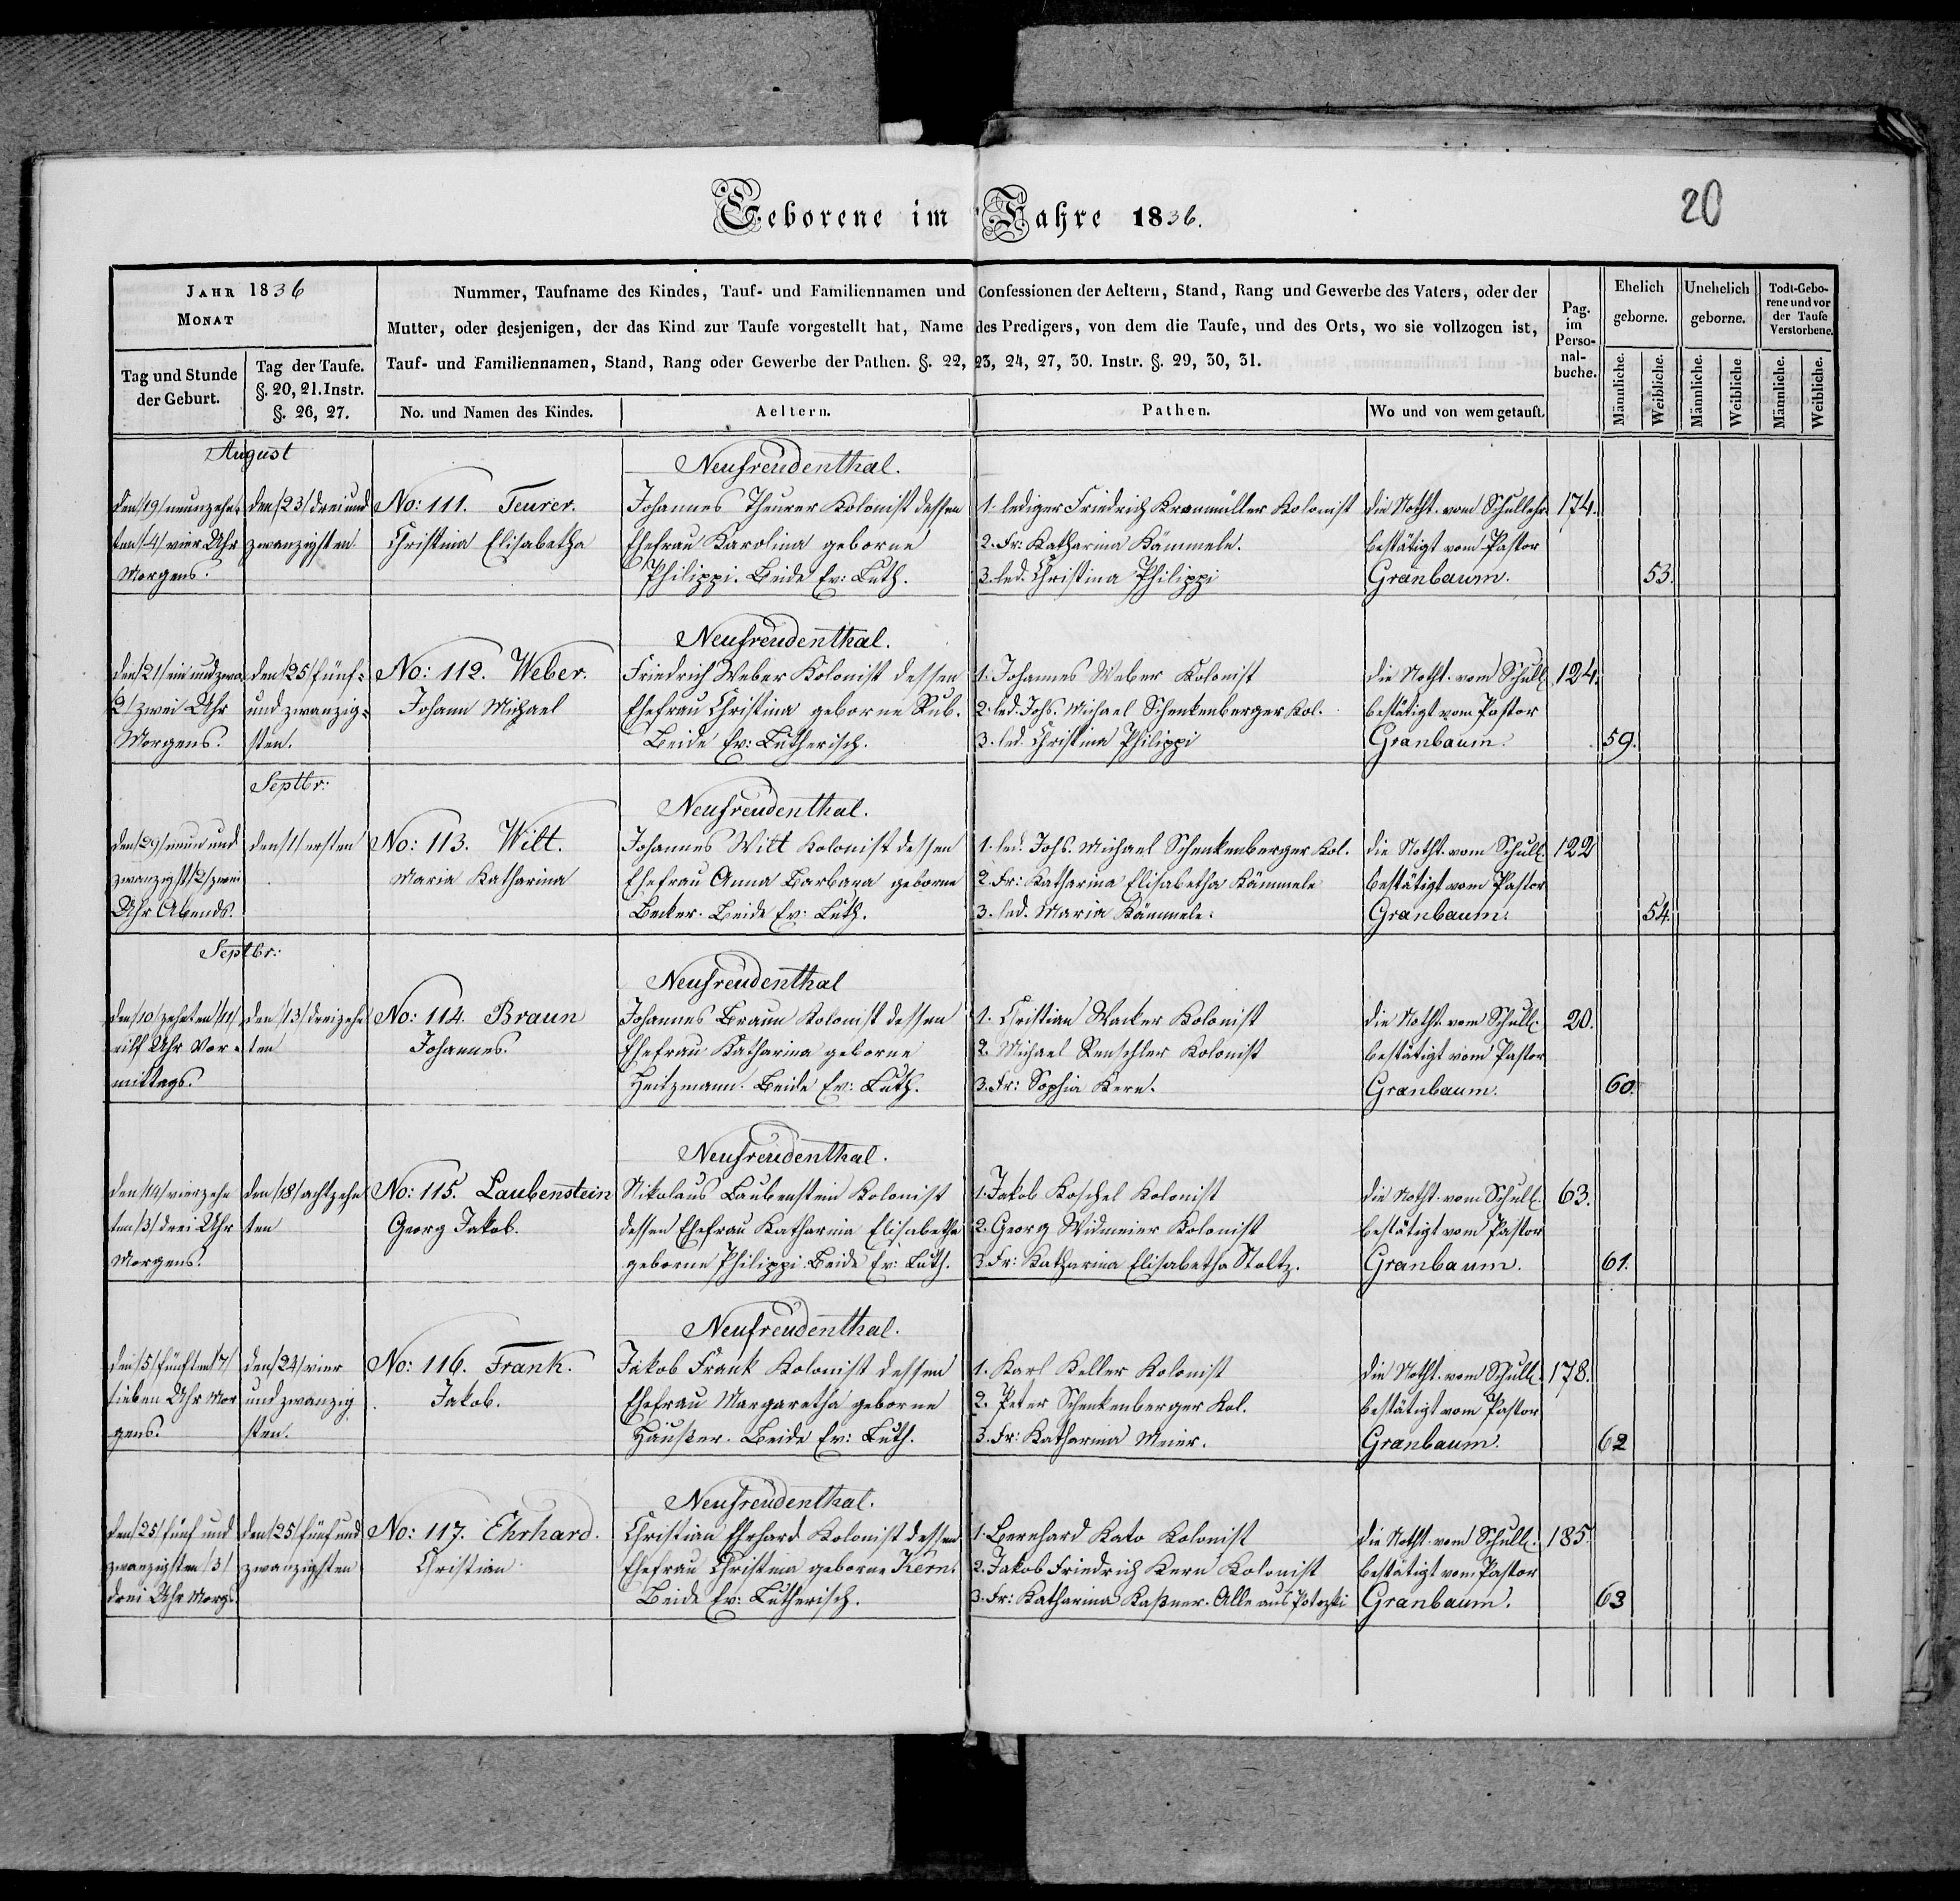 Geborene im Jahre 1836.
20
JAHR 1836
MONAT
Tag und Stunde der Geburt.
Tag der Taufe. §. 20, 21. Instr. §. 26, 27.
Nummer, Taufname des Kindes, Tauf- und Familiennamen und Confessionen der Aeltern, Stand, Rang und Gewerbe des Vaters, oder der
Mutter, oder desjenigen, der das Kind zur Taufe vorgestellt hat, Name des Predigers, von dem die Taufe, und des Orts, wo sie vollzogen ist,
Tauf- und Familiennamen, Stand, Rang oder Gewerbe der Pathen. §. 22, 23, 24, 27, 30. Instr. §. 29, 30, 31.
No. und Namen des Kindes.
Aeltern.
Pathen.
Wo und von wem getauft.
Pag. im Perso-nal-buche.
Ehelich geborne.
Unehelich geborne.
Todt-Gebo-rene und vor der Taufe Verstorbene.
Männliche. Weibliche. Männliche. Weibliche. Männliche. Weibliche.
August
Neufreudenthal.
den /19/ neunzehn- den /23/ drei und No: 111. Teurer. Johannes Theurer Kolonist dessen 1. lediger Friedrich Kranmüller Kolonist die Notht. vom Schullehr. 174.
ten /4/ vier Uhr zwanzigsten Christina Elisabetha Ehefrau Karolina geborne 2. Fr: Katharina Kämmele. bestätigt vom Pastor
Morgens. Philippi. Beide Ev: Luth. 3. led. Christina Philippi Granbaum. 53.
Neufreudenthal.
den /21/ ein und zwa. den /25/ fünf- No: 112. Weber. Friedrich Weber Kolonist dessen 1. Johannes Weber Kolonist die Notht. vom Schull. 124.
/2/ zwei Uhr und zwanzig- Johann Michael Ehefrau Christina geborne Rub. 2. led. Johs. Michael Schenkenberger Kol. bestätigt vom Pastor
Morgens. sten. Beide Ev: Lutherisch. 3. led. Christina Philippi Granbaum. 59.
Septbr:
Neufreudenthal.
den /29/ neun und den /1/ ersten No: 113. Wilt. Johannes Wilt Kolonist dessen 1. led. Johs. Michael Schenkenberger Kol. die Notht. vom Schull. 122
zwanzigst /2/ zwei Maria Katharina Ehefrau Anna Barbara geborne 2. Fr: Katharina Elisabetha Kämmele bestätigt vom Pastor
Uhr Abends. Becker. Beide Ev: Luth. 3. led. Maria Kämmele. Granbaum. 54.
Septbr:
Neufreudenthal
den /10/ zehnten /11/ den /13/ dreizehn No: 114. Braun Johannes Braun Kolonist dessen 1. Christian Wacker Kolonist die Notht. vom Schull. 20.
eilf Uhr Vor- ten Johannes. Ehefrau Katharina geborne 2. Michael Renschler Kolonist bestätigt vom Pastor
mittags. Heitzmann. Beide Ev: Luth. 3. Fr: Sophia Kern. Granbaum. 60.
Neufreudenthal.
den /14/ vierzehn den /18/ achtzehn No: 115. Laubenstein Nikolaus Laubenstein Kolonist 1. Jakob Koschel Kolonist die Notht. vom Schull. 63.
ten /3/ drei Uhr ten Georg Jakob. dessen Ehefrau Katharina Elisabetha 2. Georg Widmeier Kolonist bestätigt vom Pastor
Morgens. geborne Philippi Beide Ev: Luth. 3. Fr: Katharina Elisabetha Stoltz. Granbaum. 61.
Neufreudenthal.
den /5/ fünften /7/ den /24/ vier No: 116. Frank. Jakob Frank Kolonist dessen 1. Karl Keller Kolonist die Notht. vom Schull. 178.
sieben Uhr Mor und zwanzig Jakob. Ehefrau Margaretha geborne 2. Peter Schenkenberger Kol. bestätigt vom Pastor
gens. sten. Häußer. Beide Ev: Luth. 3. Fr: Katharina Meier. Granbaum. 62
Neufreudenthal.
den /25/ fünf und den /25/ fünf und No: 117. Ehrhard. Christian Ehrhard Kolonist dessen 1. Bernhard Kato Kolonist die Notht. vom Schull. 185.
zwanzigsten /3/ zwanzigsten Christian Ehefrau Christina geborne Kern. 2. Jakob Friedrich Kern Kolonist bestätigt vom Pastor
drei Uhr Morg. Beide Ev: Lutherisch. 3. Fr: Katharina Kaßner. Alle aus Potozki Granbaum. 63